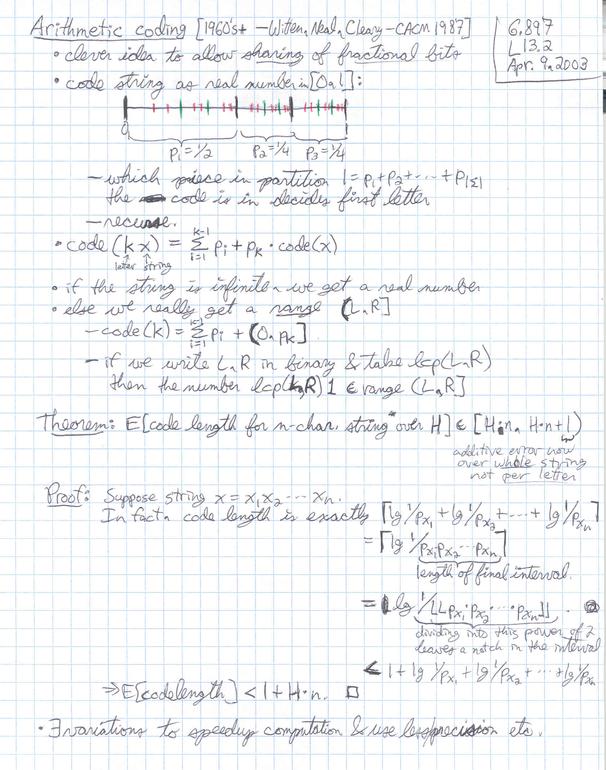 Arithmetic coding [1960's+ —Witten, Neal, Cleary—CACM 1987]
6.897
L13.2
Apr. 9, 2003
• clever idea to allow sharing of fractional bits
• code string as real number in [0,1]:
0
P₁=1/2 P₂=1/4 P₃=1/4
—which piece in partition 1=p₁+p₂+···+p|Σ|
the code is in decides first letter
—recurse.
• code(kx) = Σ_{i=1}^{k-1} pᵢ + pₖ · code(x)
letter string
• if the string is infinite, we get a real number
• else we really get a range (L,R]
—code(k) = Σ_{i=1}^{k-1} pᵢ + (0,pₖ]
—if we write L,R in binary & take lcp(L,R)
then the number lcp(L,R)1 ∈ range (L,R]
Theorem: E[code length for n-char. string over H] ∈ [H·n, H·n+1)
additive error now
over whole string
not per letter
Proof: Suppose string x = x₁x₂···xₙ.
In fact, code length is exactly ⌈lg 1/pₓ₁ + lg 1/pₓ₂ +···+ lg 1/pₓₙ⌉
= ⌈lg 1/pₓ₁pₓ₂···pₓₙ⌉
length of final interval.
= lg 1/⌊⌊pₓ₁·pₓ₂·····pₓₙ⌋⌋.
dividing into this power of 2
leaves a notch in the interval
< 1+lg 1/pₓ₁+lg 1/pₓ₂+···+lg 1/pₓₙ
⇒E[code length] < 1+H·n. □
• ∃ variations to speedup computation & use less precision etc.